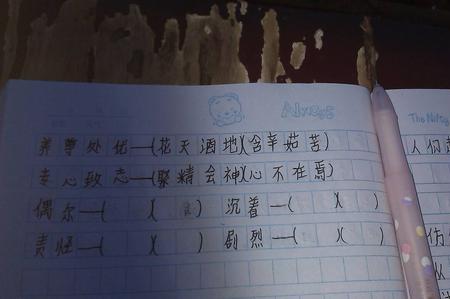 Always
The Nifty
养尊处优—(花天酒地)(含辛茹苦)
专心致志—(聚精会神)(心不在焉)
偶尔—( )( ) 沉着—( )( )
责怪—( )( ) 剧烈—( )( )
人们
伤
从